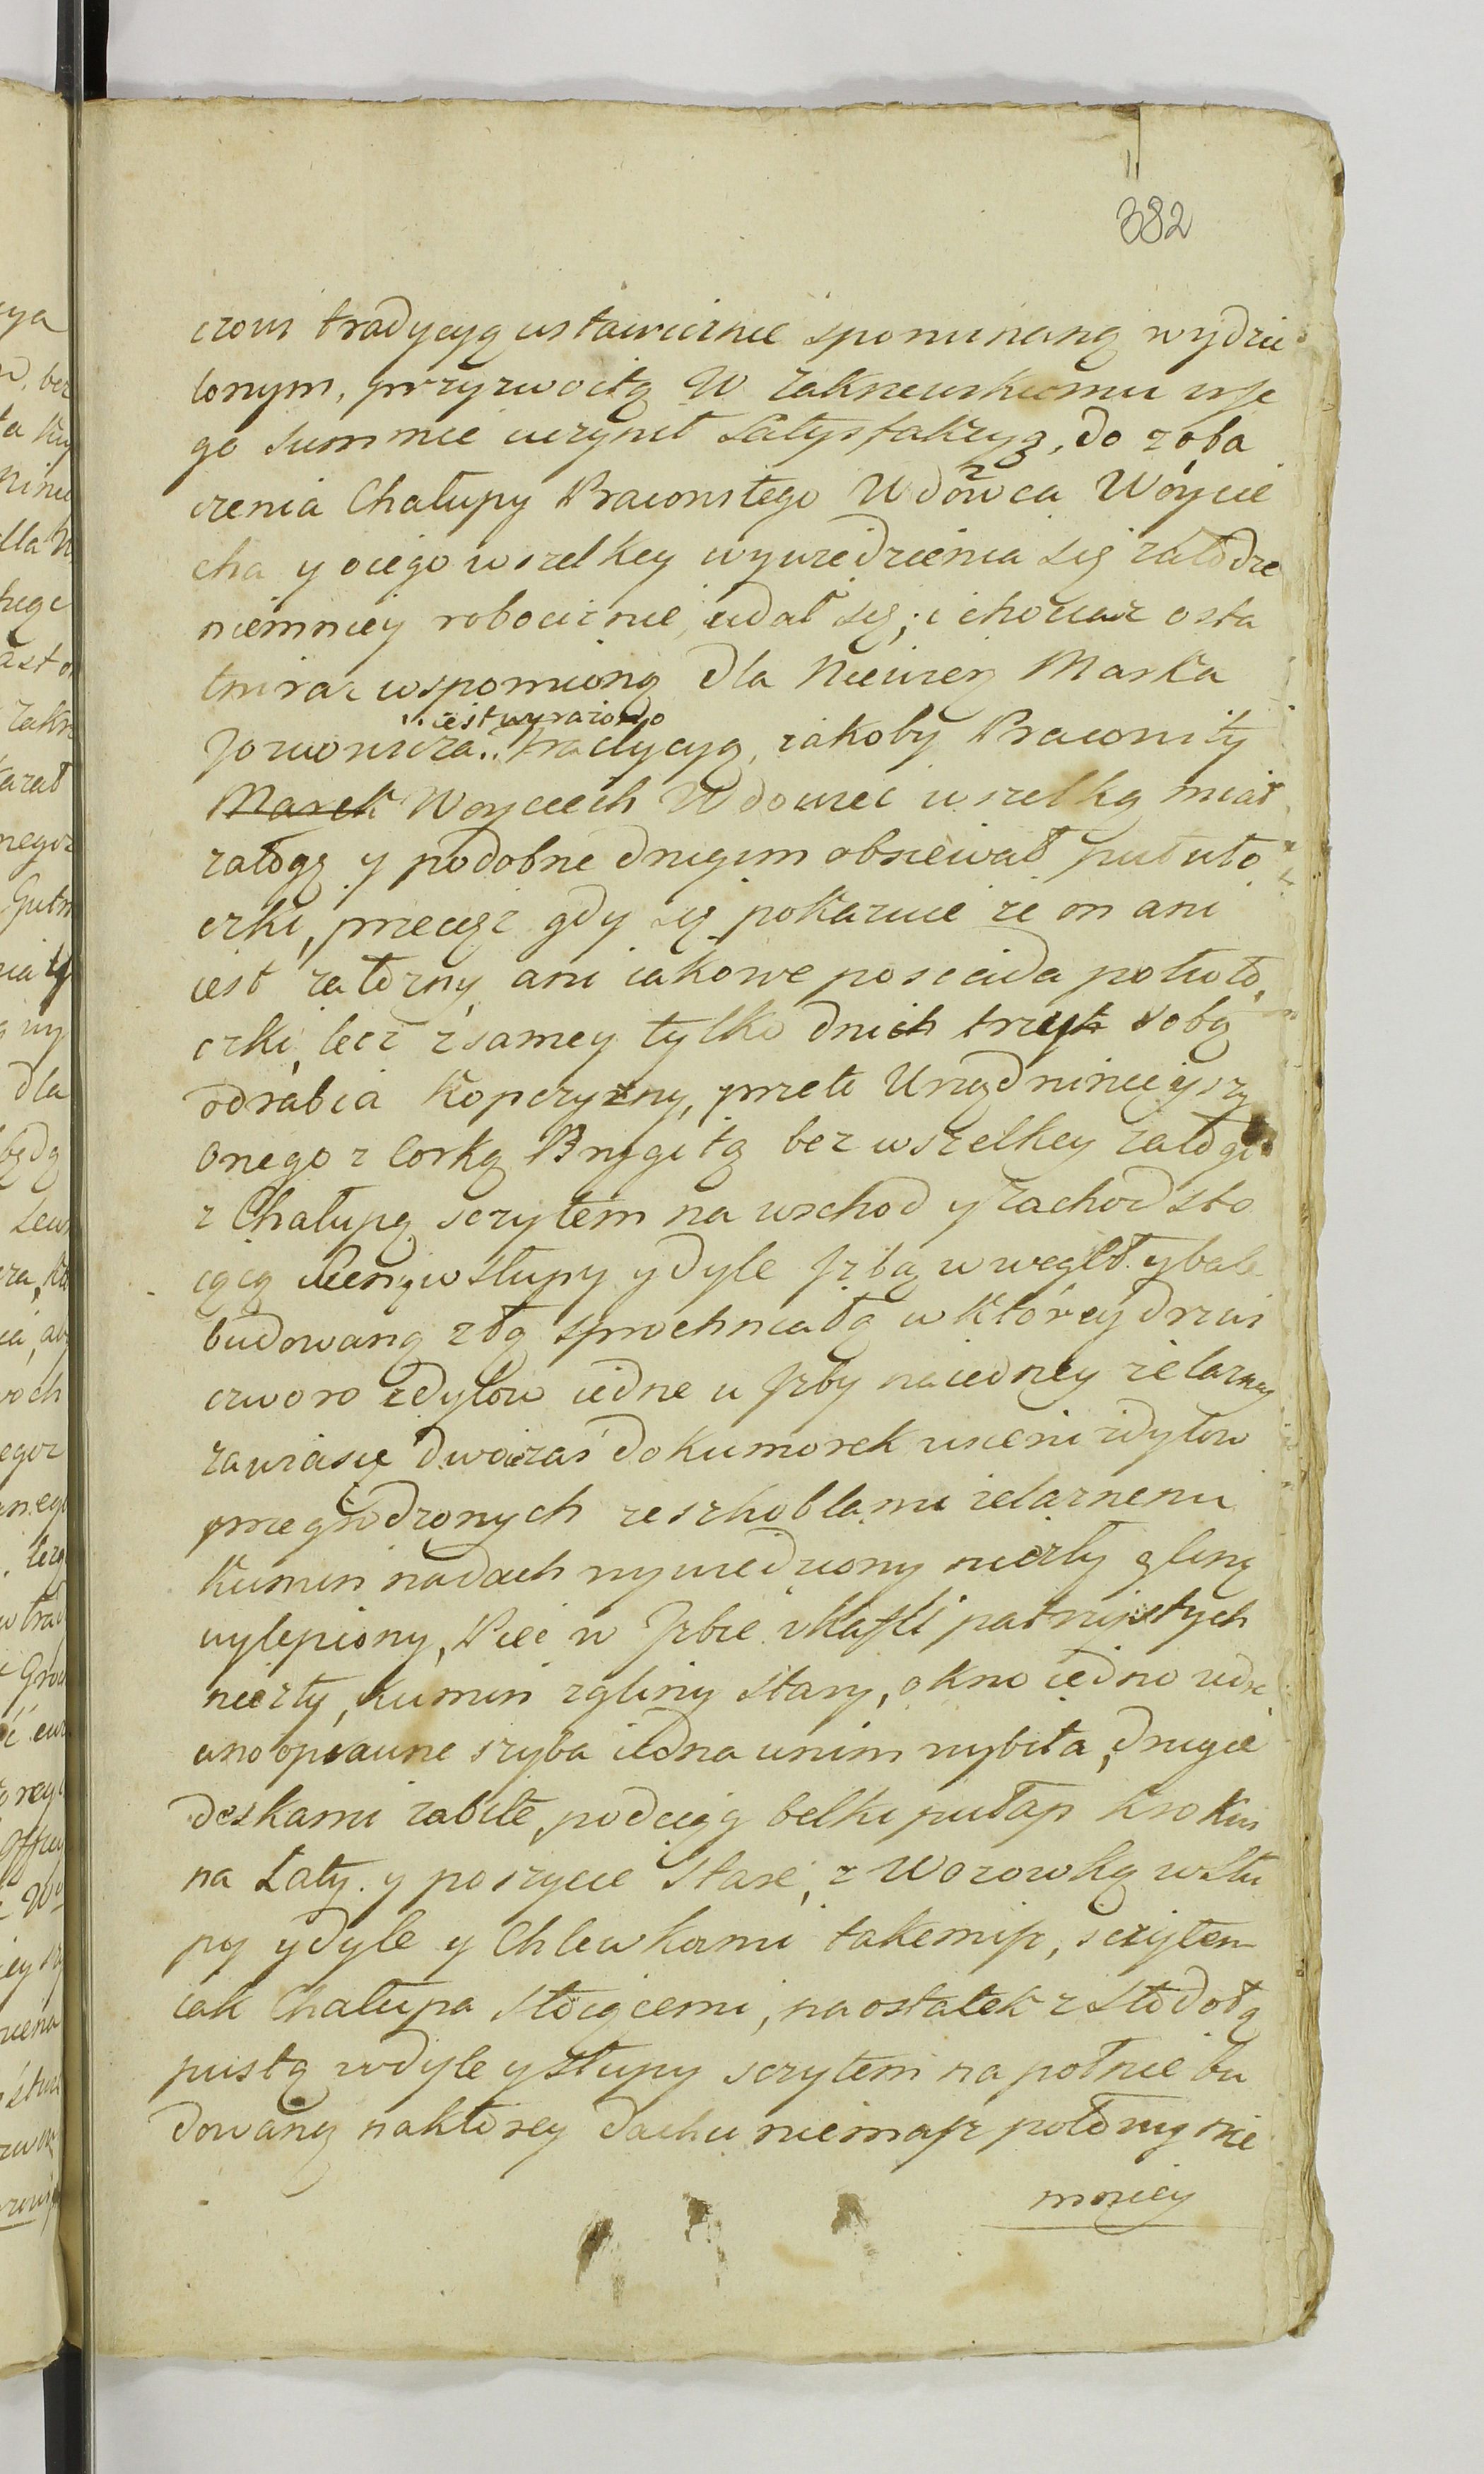 382
czom tradycyą ustawicznie spominaną wydzie
lonym, przyzwoitą W. Zakrzewskiemu w Je
go summie uczynił satysfakcyą, do zoba
czenia Chałupy Pracowitego Wdowca Woycie
cha y o iego wszelkey wywiedzenia się załodze
niemniey robociznie, udał się; i chociaż osta
tni raz wspomioną dla Niewier. Marka
Jozwowicza .. iest wyrażono tradycyą, iakoby Pracowity
Marek Woyciech Wdowiec wszelką miał
załogę y podobne drugim obsiewał pułuto
czki, przecięż gdy się pokazuie że on ani
iest załozny, ani iakowe posciada połuto,
czki, lecz z samey tylko dnich trzyh sobą
odrabia Kopczyzny, przeto Urzędnineyszy
Onego z Corką Brygitą bez wszelkey załogi
z Chałupą sczytem na wschod y zachod sto
iącą Sienią w słupy y dyle Jzbą w węgeł y bale
budowaną złą sprochniałą w którey drzwi
czworo z dylow iedne u Jzby na iedney żelazney
zawiasie dwoie zaś do kumorek w sieni z dylow
przegrodzonych ze szkoblami żelaznemi
Kumin na dach wywiedziony niezły gliną
wylepiony, Piec w Jzbie z kafli patnistych
niezły, kumin z gliny stary, okno iedno w drze
wno opsawne szyba iedna w nim wybita, drugie
deskami zabite, podciąg belki pułap krokwi
na Łaty y poszycie stare, z Wozowką w słu
py y dyle y Chlewkami takiemiż, sczytem
iak Chałupa stoiącemi, na ostatek z stodołą
pustą w dyle y słupy sczytem na połnie bu
dowaną na ktorey dachu niemasz połowy nie
mniey